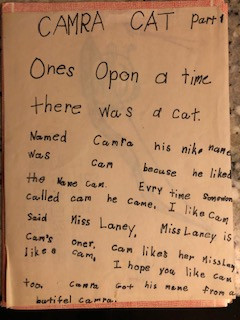 CAMRA CAT Part 1
Ones Opon a time
there was a cat.
Named Camra his nike name
was cam becuse he liked
the Name cam. Evry time somewon
called cam he came. I like cam
Said Miss Laney. Miss Laney is
Cam's oner. cam likes her Miss Laney
like a cam. I hope you like cam
too. camra Got his name from a
butifel camra.